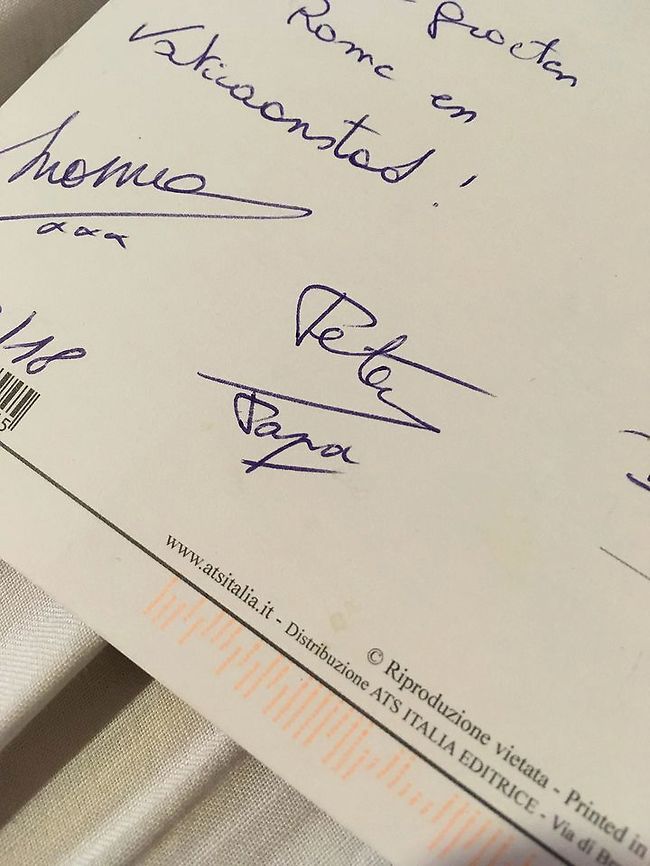 Groeten
Rome en
Vaticaanstad!
Mama
xxx
/18
Peter
Papa
www.atsitalia.it - Distribuzione ATS ITALIA EDITRICE - Via di B
© Riproduzione vietata - Printed in